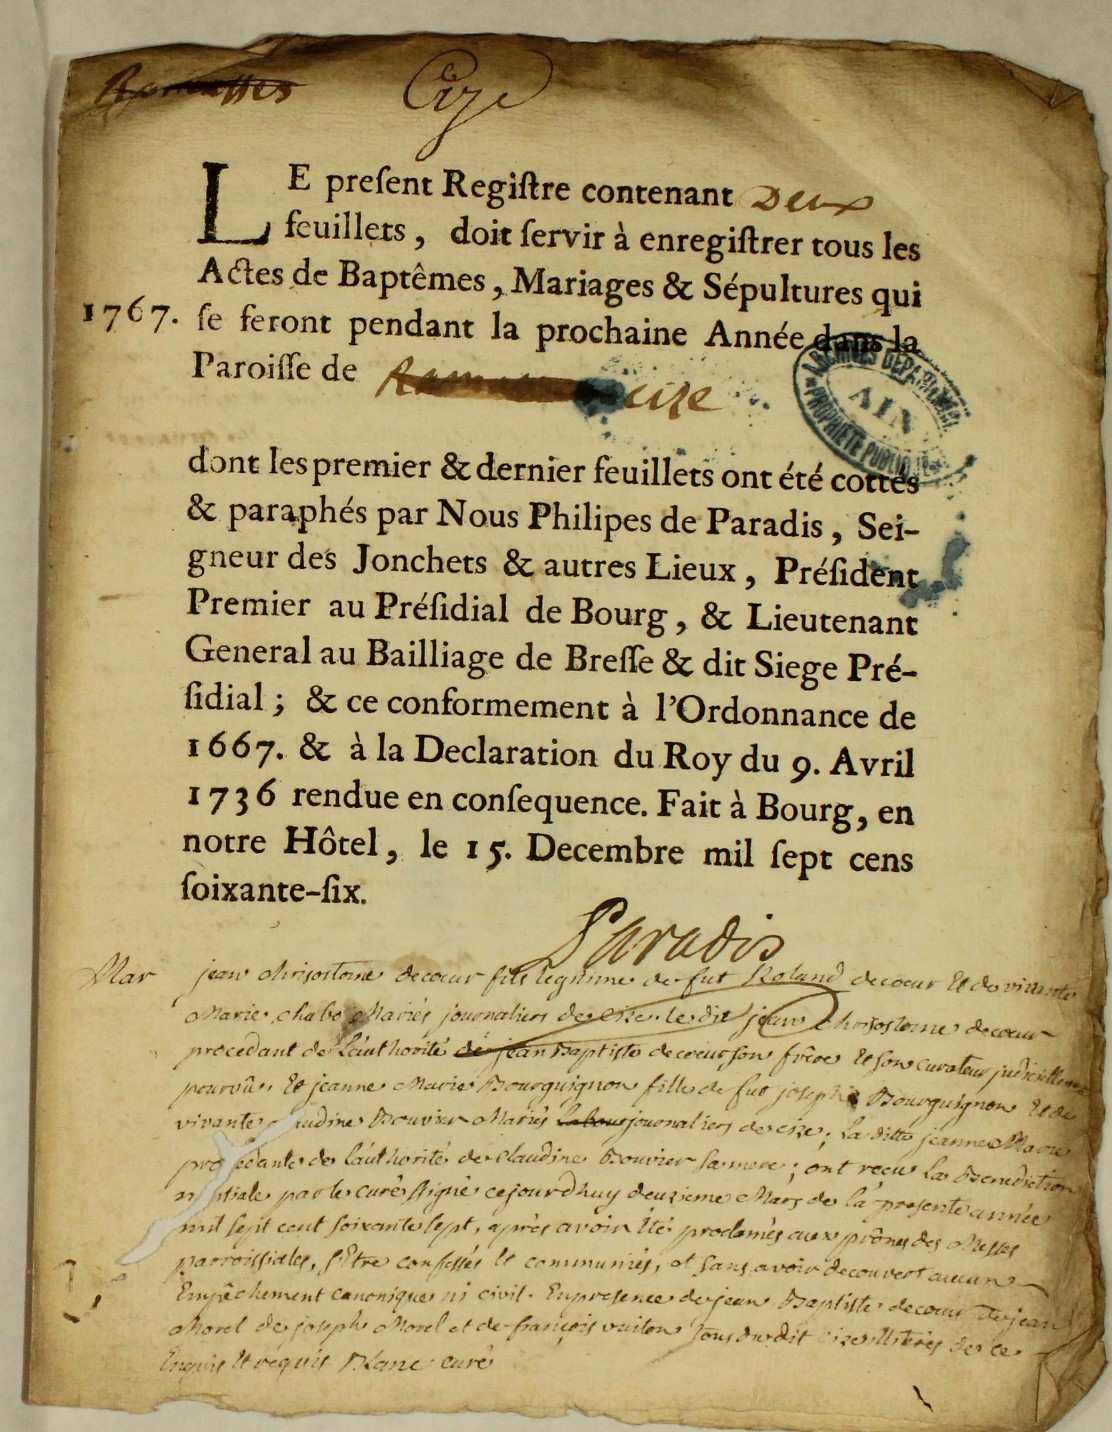 Ramasses Cize
LE preſent Regiſtre contenant Deux
feuillets, doit ſervir à enregiſtrer tous les
Actes de Baptêmes, Mariages & Sépultures qui
1767. ſe feront pendant la prochaine Année dans la
Paroiſſe de cize
ARCHIVES DEPARTEMENTALES
AIN
PROPRIÉTÉ PUBLIQUE
dont les premier & dernier feuillets ont été cottés
& paraphés par Nous Philipes de Paradis, Sei-
gneur des Jonchets & autres Lieux, Préſident
Premier au Préſidial de Bourg, & Lieutenant
General au Bailliage de Breſſe & dit Siege Pré-
ſidial; & ce conformement à l'Ordonnance de
1667. & à la Declaration du Roy du 9. Avril
1736 rendue en conſequence. Fait à Bourg, en
notre Hôtel, le 15. Decembre mil ſept cens
ſoixante-ſix.
Paradis
Mar jean chrisostome decœur fils legitime de fut Roland decœur Et de vivante
Marie chabo Mariés journaliers de cize. le dit jean chrisostome decœur
procedant de l'authorité de jean Baptiste decœur son frère Et son curateur judiciellement
pourvû. Et jeanne Marie Bourguignon fille de fut joseph Bourguignon Et de
vivante claudine Bouvier Mariés labour journaliers de cize; la ditte jeanne Marie
procedante de l'authorité de claudine Bouvier sa mere; ont recu la Benediction
nuptiale par le curé signé cejourdhuy deuxieme Mars de la presente année
mil sept cent soixante sept, après avoir Eté proclamés aux prônes des Messes
parroissiales, s'Etre confessés Et communiés, et sans avoir decouvert aucun
Empêchement canonique ni civil. En presence de jean Baptiste decœur de jean
Morel de joseph Morel et de françois vuiton tous du dit cize Illiterés de ce
Enquis Et requis Blanc curé